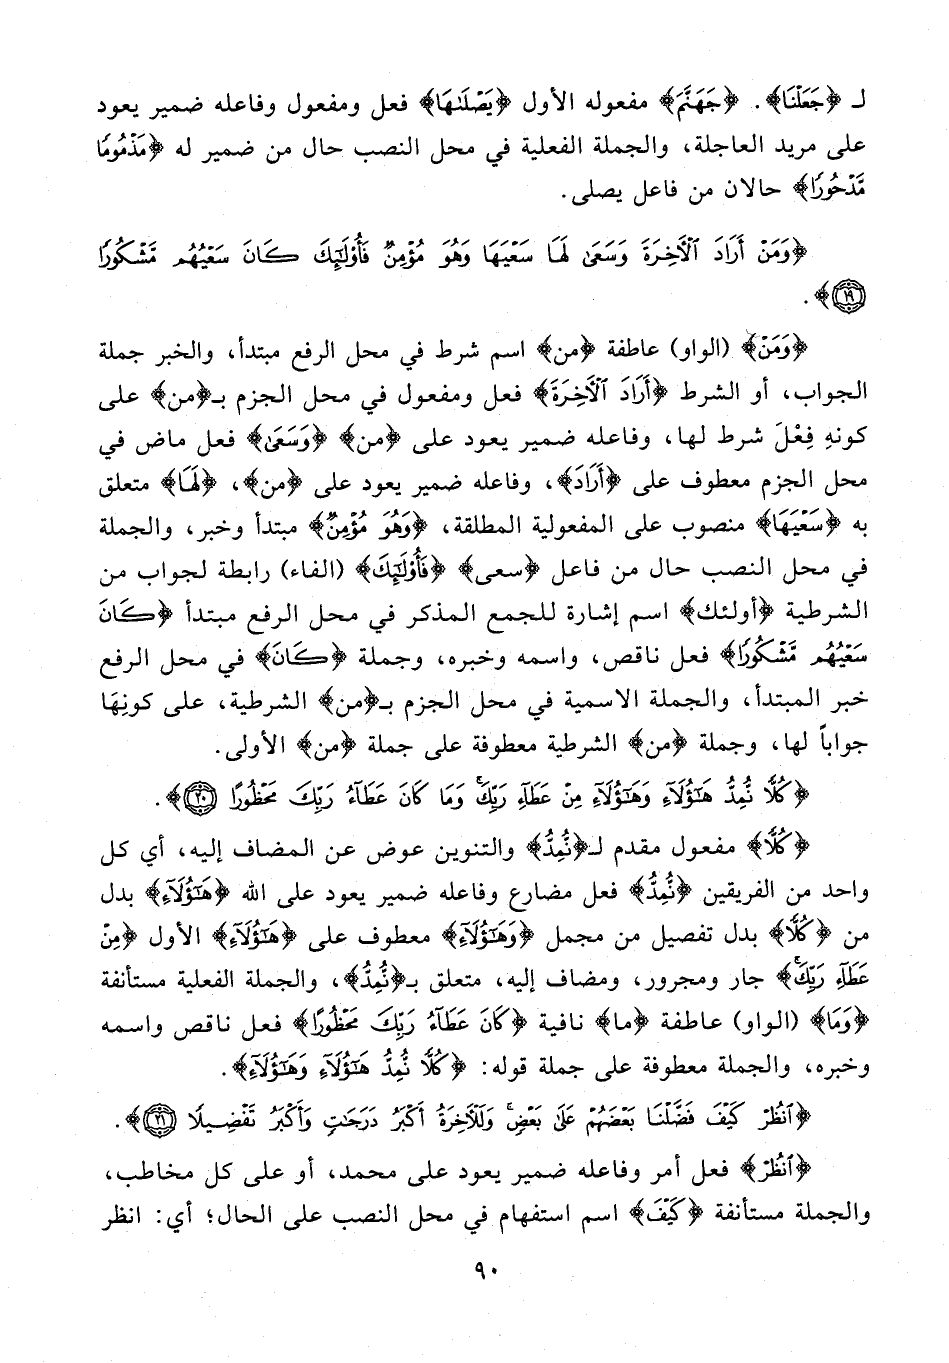 لـ ﴿جَعَلْنَا﴾. ﴿جَهَنَّمَ﴾ مفعوله الأول ﴿يَصْلَىٰهَا﴾ فعل ومفعول وفاعله ضمير يعود
على مريد العاجلة، والجملة الفعلية في محل النصب حال من ضمير له ﴿مَذْمُومًا
مَّدْحُورًا﴾ حالان من فاعل يصلى.
﴿وَمَنْ أَرَادَ ٱلْأَخِرَةَ وَسَعَىٰ لَهَا سَعْيَهَا وَهُوَ مُؤْمِنٌ فَأُو۟لَٰٓئِكَ كَانَ سَعْيُهُم مَّشْكُورًا
١٩﴾.
﴿وَمَنْ﴾ (الواو) عاطفة ﴿من﴾ اسم شرط في محل الرفع مبتدأ، والخبر جملة
الجواب، أو الشرط ﴿أَرَادَ ٱلْأَخِرَةَ﴾ فعل ومفعول في محل الجزم بـ﴿من﴾ على
كونهِ فِعْلَ شرط لها، وفاعله ضمير يعود على ﴿من﴾ ﴿وَسَعَىٰ﴾ فعل ماض في
محل الجزم معطوف على ﴿أَرَادَ﴾، وفاعله ضمير يعود على ﴿من﴾، ﴿لَهَا﴾ متعلق
به ﴿سَعْيَهَا﴾ منصوب على المفعولية المطلقة، ﴿وَهُوَ مُؤْمِنٌ﴾ مبتدأ وخبر، والجملة
في محل النصب حال من فاعل ﴿سعى﴾ ﴿فَأُو۟لَٰٓئِكَ﴾ (الفاء) رابطة لجواب من
الشرطية ﴿أولئك﴾ اسم إشارة للجمع المذكر في محل الرفع مبتدأ ﴿كَانَ
سَعْيُهُم مَّشْكُورًا﴾ فعل ناقص، واسمه وخبره، وجملة ﴿كَانَ﴾ في محل الرفع
خبر المبتدأ، والجملة الاسمية في محل الجزم بـ﴿من﴾ الشرطية، على كونِهَا
جواباً لها، وجملة ﴿من﴾ الشرطية معطوفة على جملة ﴿من﴾ الأولى.
﴿كُلًّا نُّمِدُّ هَٰٓؤُلَآءِ وَهَٰٓؤُلَآءِ مِنْ عَطَآءِ رَبِّكَ ۚ وَمَا كَانَ عَطَآءُ رَبِّكَ مَحْظُورًا ٢٠﴾.
﴿كُلًّا﴾ مفعول مقدم لـ﴿نُّمِدُّ﴾ والتنوين عوض عن المضاف إليه، أي كل
واحد من الفريقين ﴿نُّمِدُّ﴾ فعل مضارع وفاعله ضمير يعود على الله ﴿هَٰٓؤُلَآءِ﴾ بدل
من ﴿كُلًّا﴾ بدل تفصيل من مجمل ﴿وَهَٰٓؤُلَآءِ﴾ معطوف على ﴿هَٰٓؤُلَآءِ﴾ الأول ﴿مِنْ
عَطَآءِ رَبِّكَ ۚ﴾ جار ومجرور، ومضاف إليه، متعلق بـ﴿نُّمِدُّ﴾، والجملة الفعلية مستأنفة
﴿وَمَا﴾ (الواو) عاطفة ﴿ما﴾ نافية ﴿كَانَ عَطَآءُ رَبِّكَ مَحْظُورًا﴾ فعل ناقص واسمه
وخبره، والجملة معطوفة على جملة قوله: ﴿كُلًّا نُّمِدُّ هَٰٓؤُلَآءِ وَهَٰٓؤُلَآءِ﴾.
﴿ٱنظُرْ كَيْفَ فَضَّلْنَا بَعْضَهُمْ عَلَىٰ بَعْضٍ ۚ وَلَلْأَخِرَةُ أَكْبَرُ دَرَجَٰتٍ وَأَكْبَرُ تَفْضِيلًا ٢١﴾.
﴿ٱنظُرْ﴾ فعل أمر وفاعله ضمير يعود على محمد، أو على كل مخاطب،
والجملة مستأنفة ﴿كَيْفَ﴾ اسم استفهام في محل النصب على الحال؛ أي: انظر
٩٠